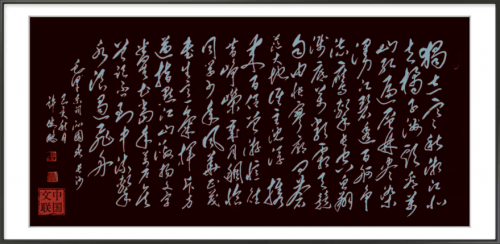 独立寒秋湘江北
去橘子洲头看万
山红遍层林尽染
漫江碧透百舸争
流鹰击长空鱼翔
浅底万类霜天竞
自由怅寥廓问苍
茫大地谁主沉浮携
来百侣曾游忆往
昔峥嵘岁月稠恰
同学少年风华正茂
书生意气挥斥方
遒指点江山激扬文字
粪土当年万户侯
曾记否到中流击
水浪遏飞舟
毛泽东词沁园春长沙
中国
文联